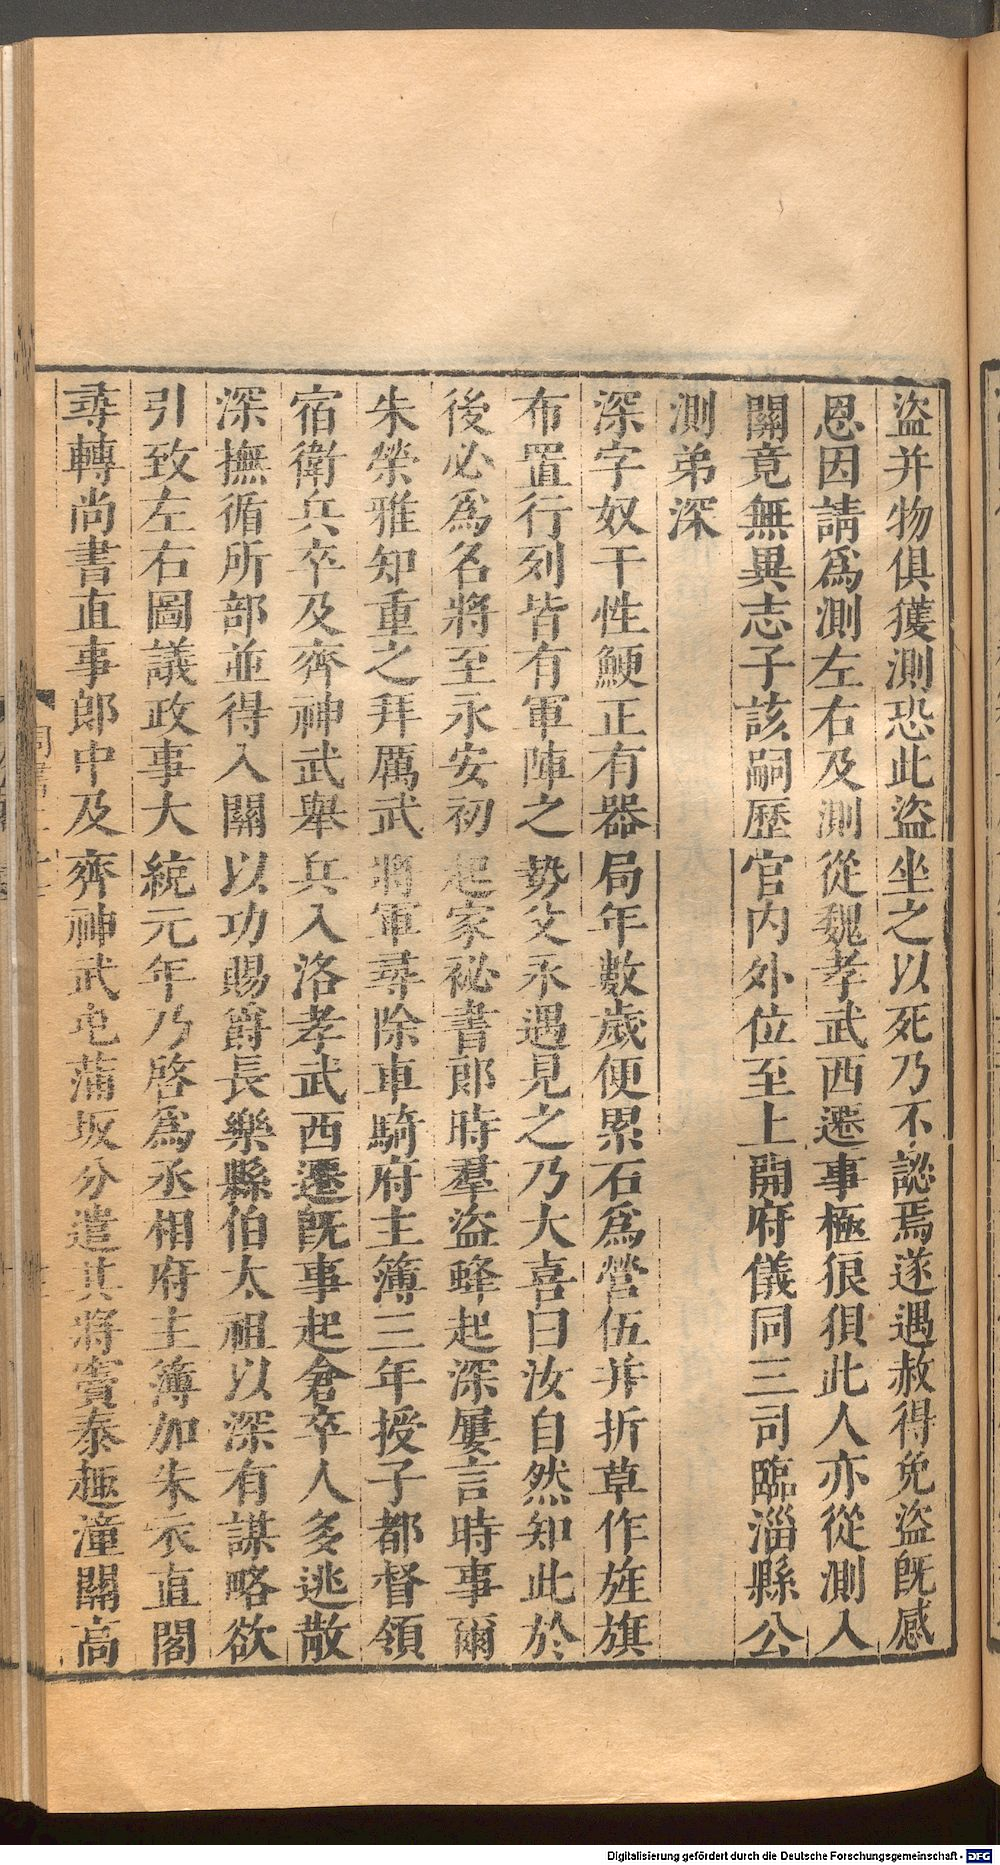 盜并物俱獲測恐此盜坐之以死乃不認焉遂遇赦得免盜既感
恩因請爲測左右及測從魏孝武西遷事極狼狽此人亦從測入
關竟無異志子該嗣歷官内外位至上開府儀同三司臨淄縣公
測弟深
深字奴干性鯁正有器局年數歲便累石爲營伍并折草作旌旗
布置行列皆有軍陣之勢父永遇見之乃大喜曰汝自然知此於
後必爲名將至永安初起家祕書郎時羣盜蜂起深屢言時事爾
朱榮雅知重之拜厲武將軍尋除車騎府主簿三年授子都督領
宿衛兵卒及齊神武舉兵入洛孝武西遷既事起倉卒人多逃散
深撫循所部並得入關以功賜爵長樂縣伯太祖以深有謀略欲
引致左右圖議政事大統元年乃啓爲丞相府主簿加朱衣直閤
尋轉尚書直事郎中及齊神武屯蒲坂分遣其將竇泰趣潼關高
Digitalisierung gefördert durch die Deutsche Forschungsgemeinschaft - DFG